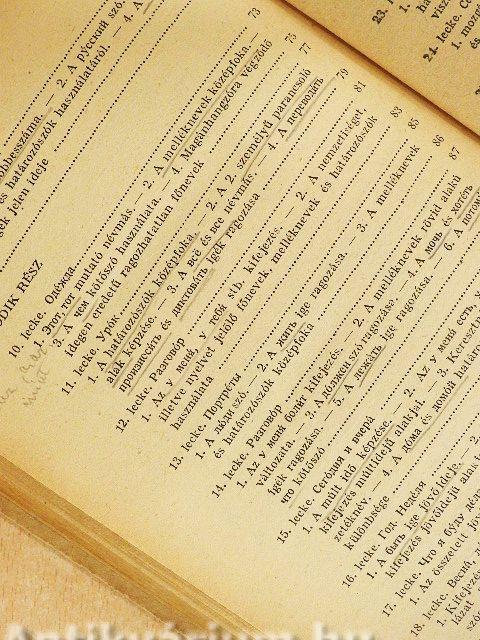 többesszáma. — 2. A ру́сский szó.
és határozószók használatáról. — 4. A
igék jelen ideje
73
DIK RÉSZ
10. lecke. Оде́жда.
1. Этот, тот mutató névmás. — 2. A melléknevek középfoka. —
3. A чем kötőszó használata. — 4. Magánhangzóra végződő
idegen eredetű ragozhatatlan főnevek
75
11. lecke. Уро́к
77
1. A határozószók középfoka. — 2. A 2. személyű parancsoló
alak képzése. — 3. A всё és все névmás. — 4. A переводи́ть
произноси́ть és диктова́ть igék ragozása
79
12. lecke. Разгово́р
81
1. Az у меня́, у тебя́ stb. kifejezés. — 2. A nemzetiséget,
illetve nyelvet jelölő főnevek, melléknevek és határozószók
használata
83
13. lecke. Портре́ты
85
1. A лю́ди szó. — 2. A жить ige ragozása. — 3. A melléknevek
és határozószók középfoka
86
14. lecke. Разгово́р
87
1. Az у меня́ боли́т kifejezés. — 2. A melléknevek rövid alakú
változata. — 3. A до́лжен szó ragozása. — 4. A мочь és хоте́ть
igék ragozása. — 5. A лежа́ть ige ragozása. — 6. A
что kötőszó
15. lecke. Сего́дня и вчера́
1. A múlt idő képzése. — 2. Az у меня́ есть,
kifejezés múltidejű alakjai. — 3.
zetéknév. — 4. A до́ма és домо́й
különbsége
16. lecke. Год. Неде́ля
1. A быть ige jövő ideje. — 2.
kifejezés jövőidejű
17. lecke. Что я бу́ду
1. Az összetett
18. lecke. Весна́,
1. Kifejezés
23.
24. lecke.
1.
Antikvárium.hu